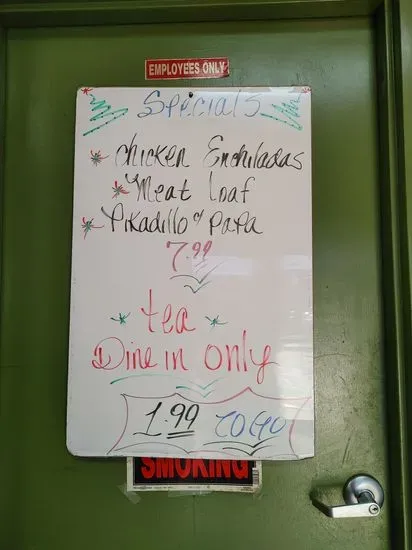 EMPLOYEES ONLY
Specials
Chicken Enchiladas
Meat Loaf
Pikadillo y Papa
7.99
tea
Dine in only
1.99 TO GO
SMOKING